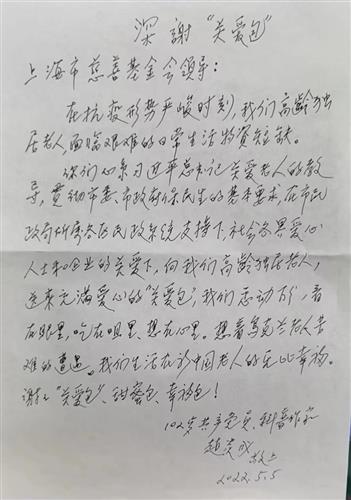 深謝“关爱包”
上海市慈善基金会领导：
在抗疫形势严峻时刻，我们高齡独
居老人，面临艰难的日常生活物資短缺。
你们心系习近平总书记关爱老人的教
导，贯彻市委、市政府保民生的基本要求，在市民
政局所属各区民政系统支持下，社会各界爱心
人士和企业的关爱下，向我们高齡独居老人，
送来充满爱心的“关爱包”，我们感动万分，看
在眼里，吃在咀里，想在心里。想着乌克兰老人苦
难的遭遇。我们生活在新中国老人的无比幸福。
谢谢“关爱包”、甜蜜包、幸福包！
102岁共产党员、科普作家
趙
敬上
2022.5.5